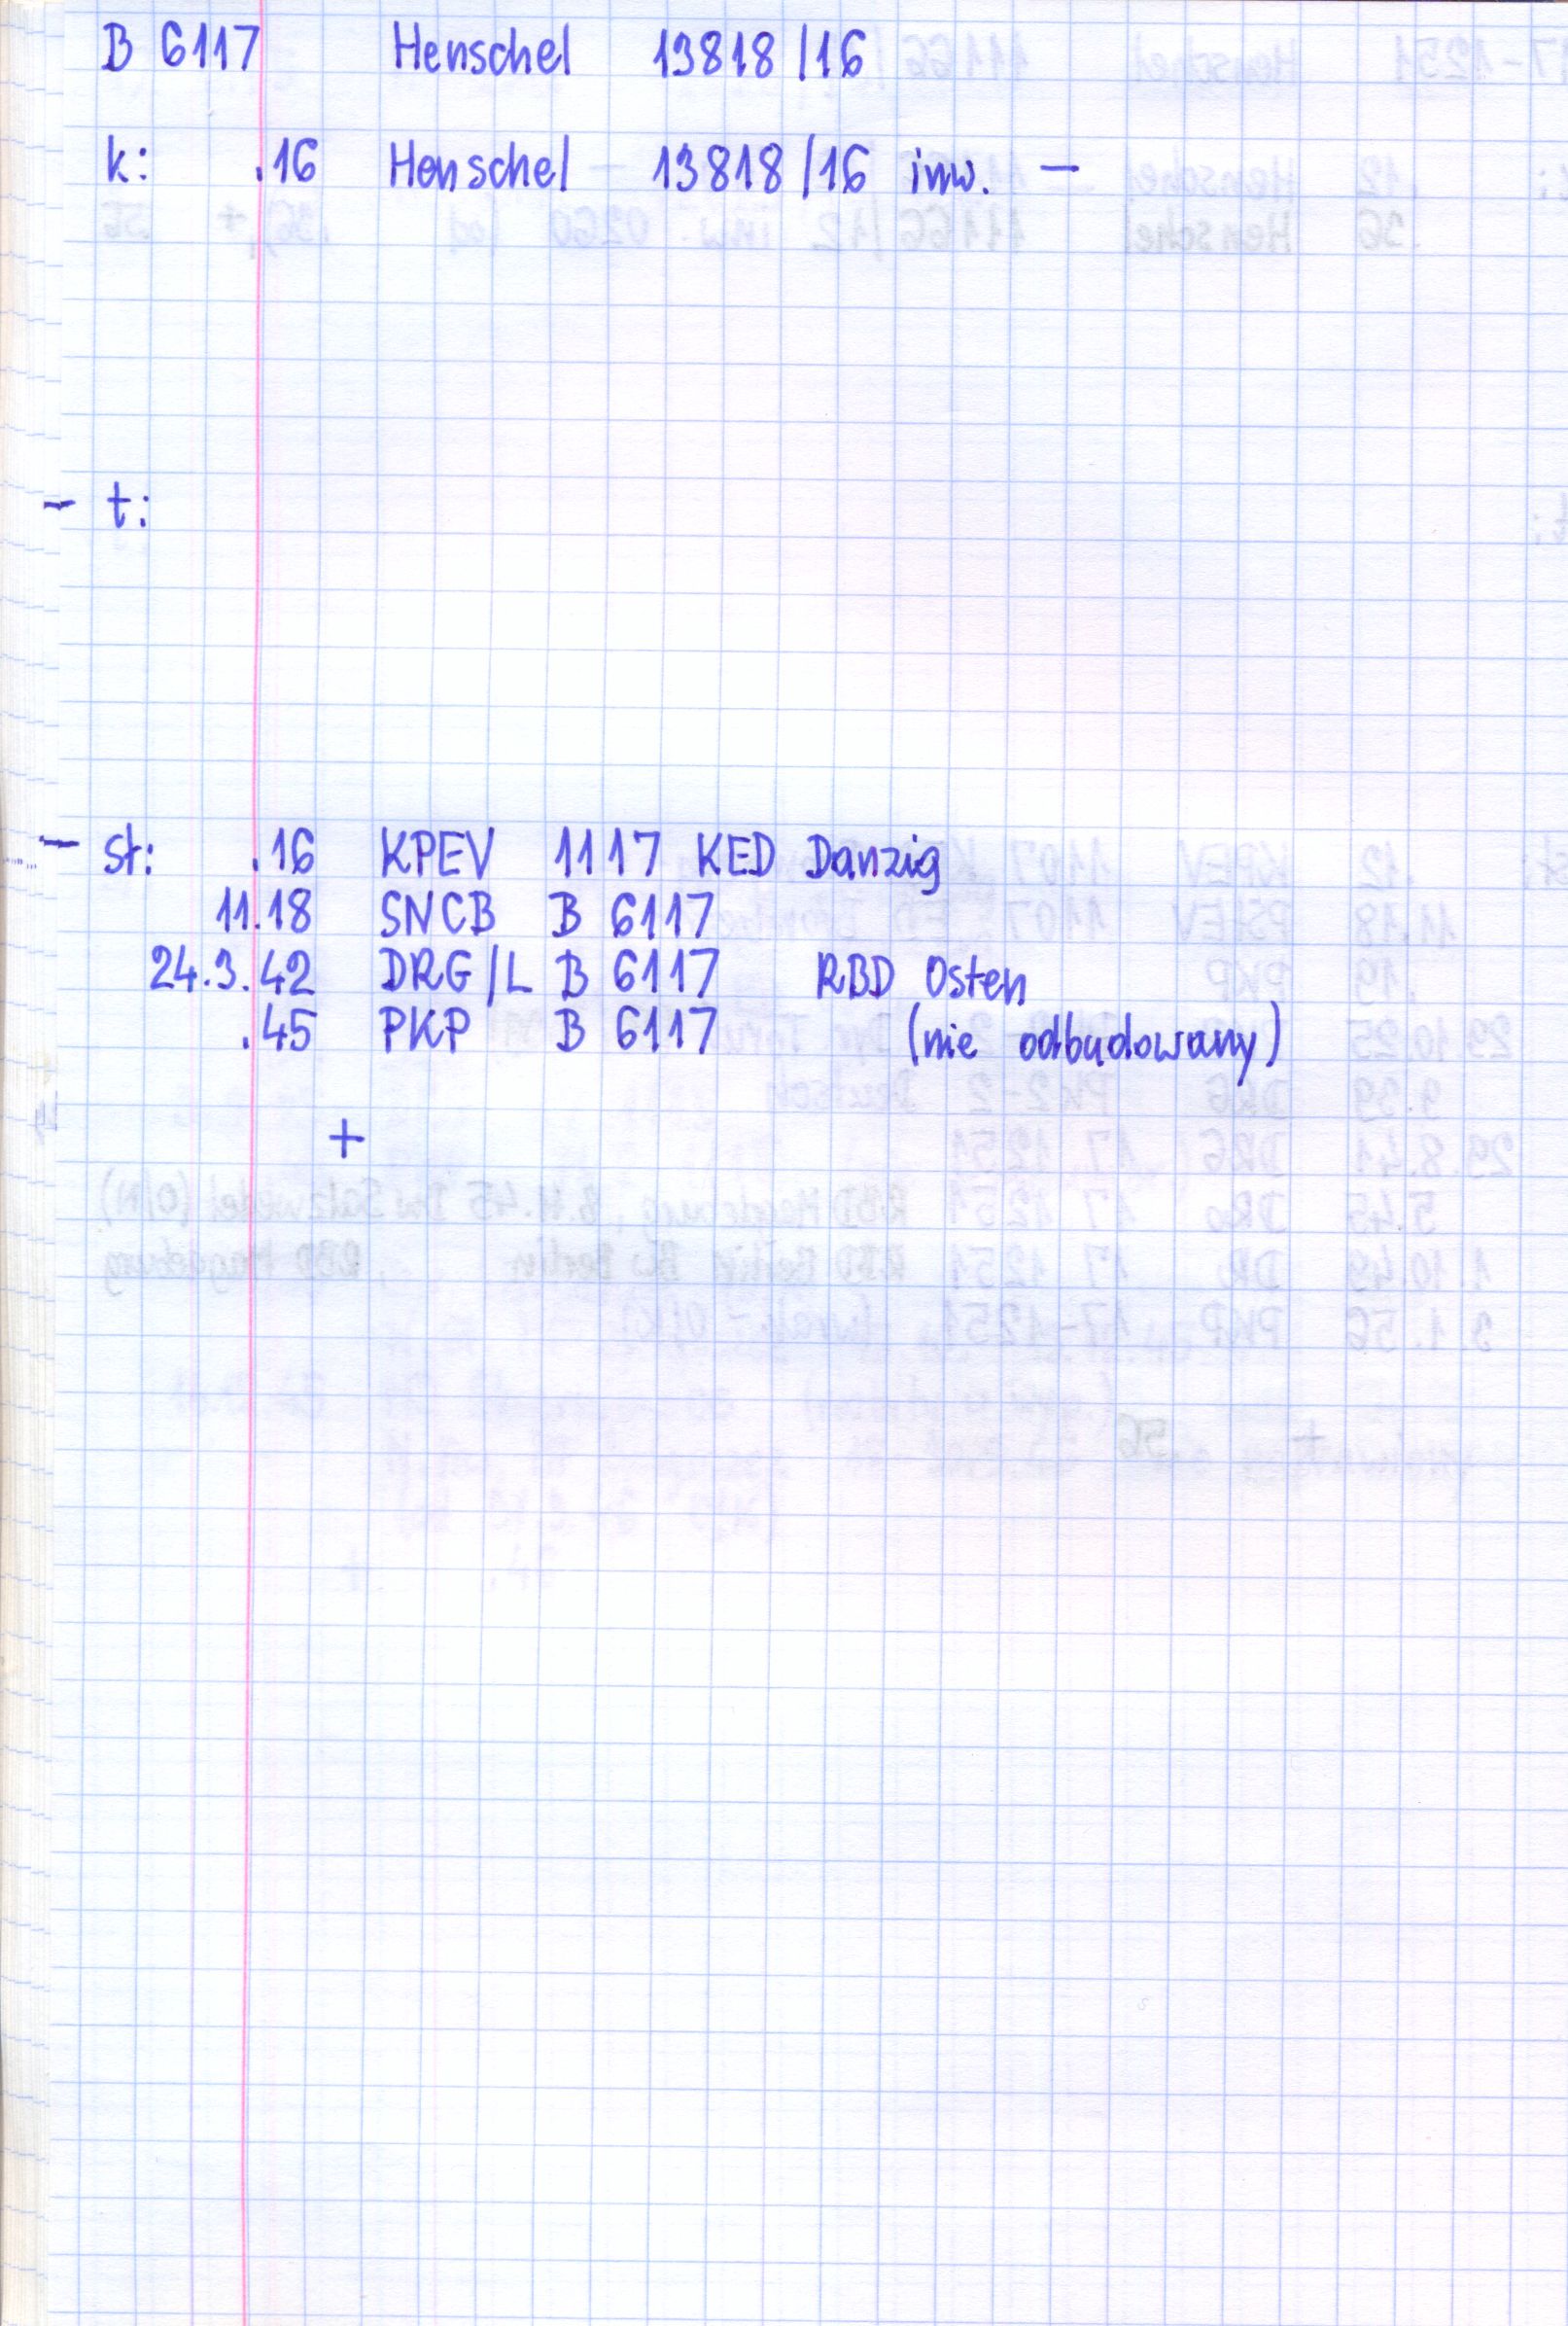 B 6117 Henschel 13818/16
k: .16 Henschel 13818/16 inw. –
– t:
– st: .16 KPEV 1117 KED Danzig
11.18 SNCB B 6117
24.3.42 DRG/L B 6117 RBD Osten
.45 PKP B 6117 (nie odbudowany)
+